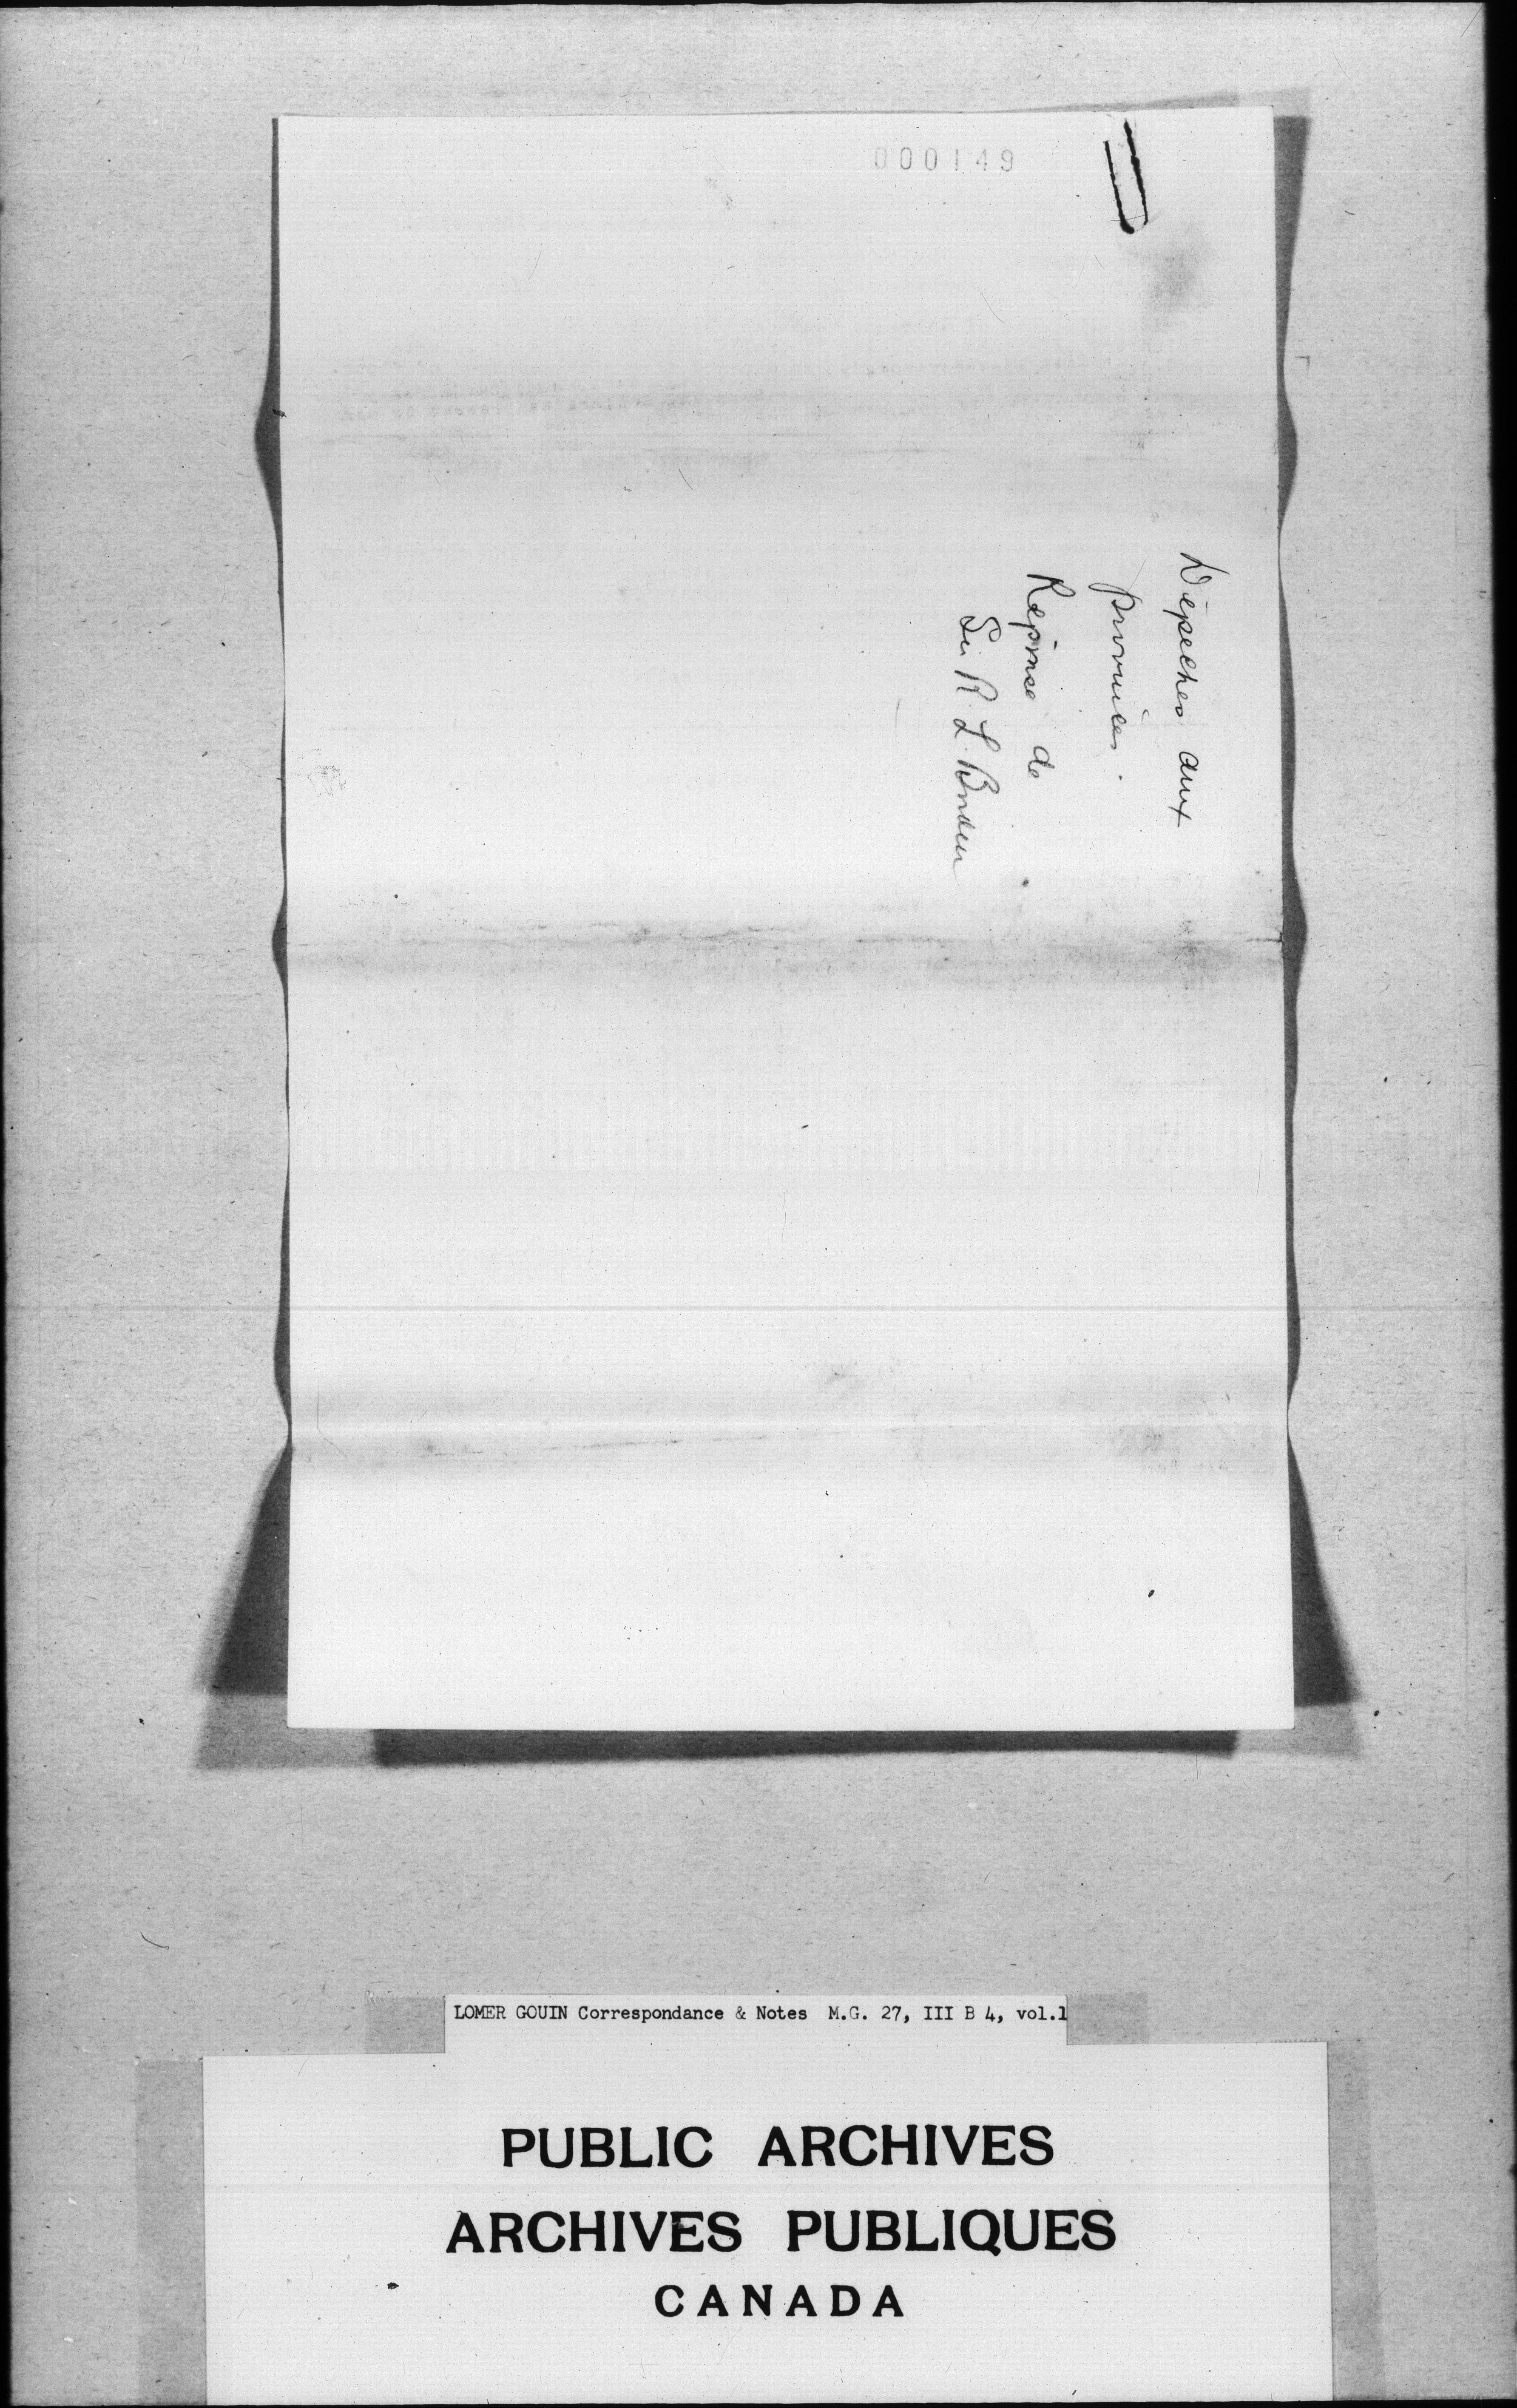 000149
Dépeches aux
provinces.
Réponse de
Sir R. L. Borden
LOMER GOUIN Correspondance & Notes M.G. 27, III B 4, vol.1
PUBLIC ARCHIVES
ARCHIVES PUBLIQUES
CANADA